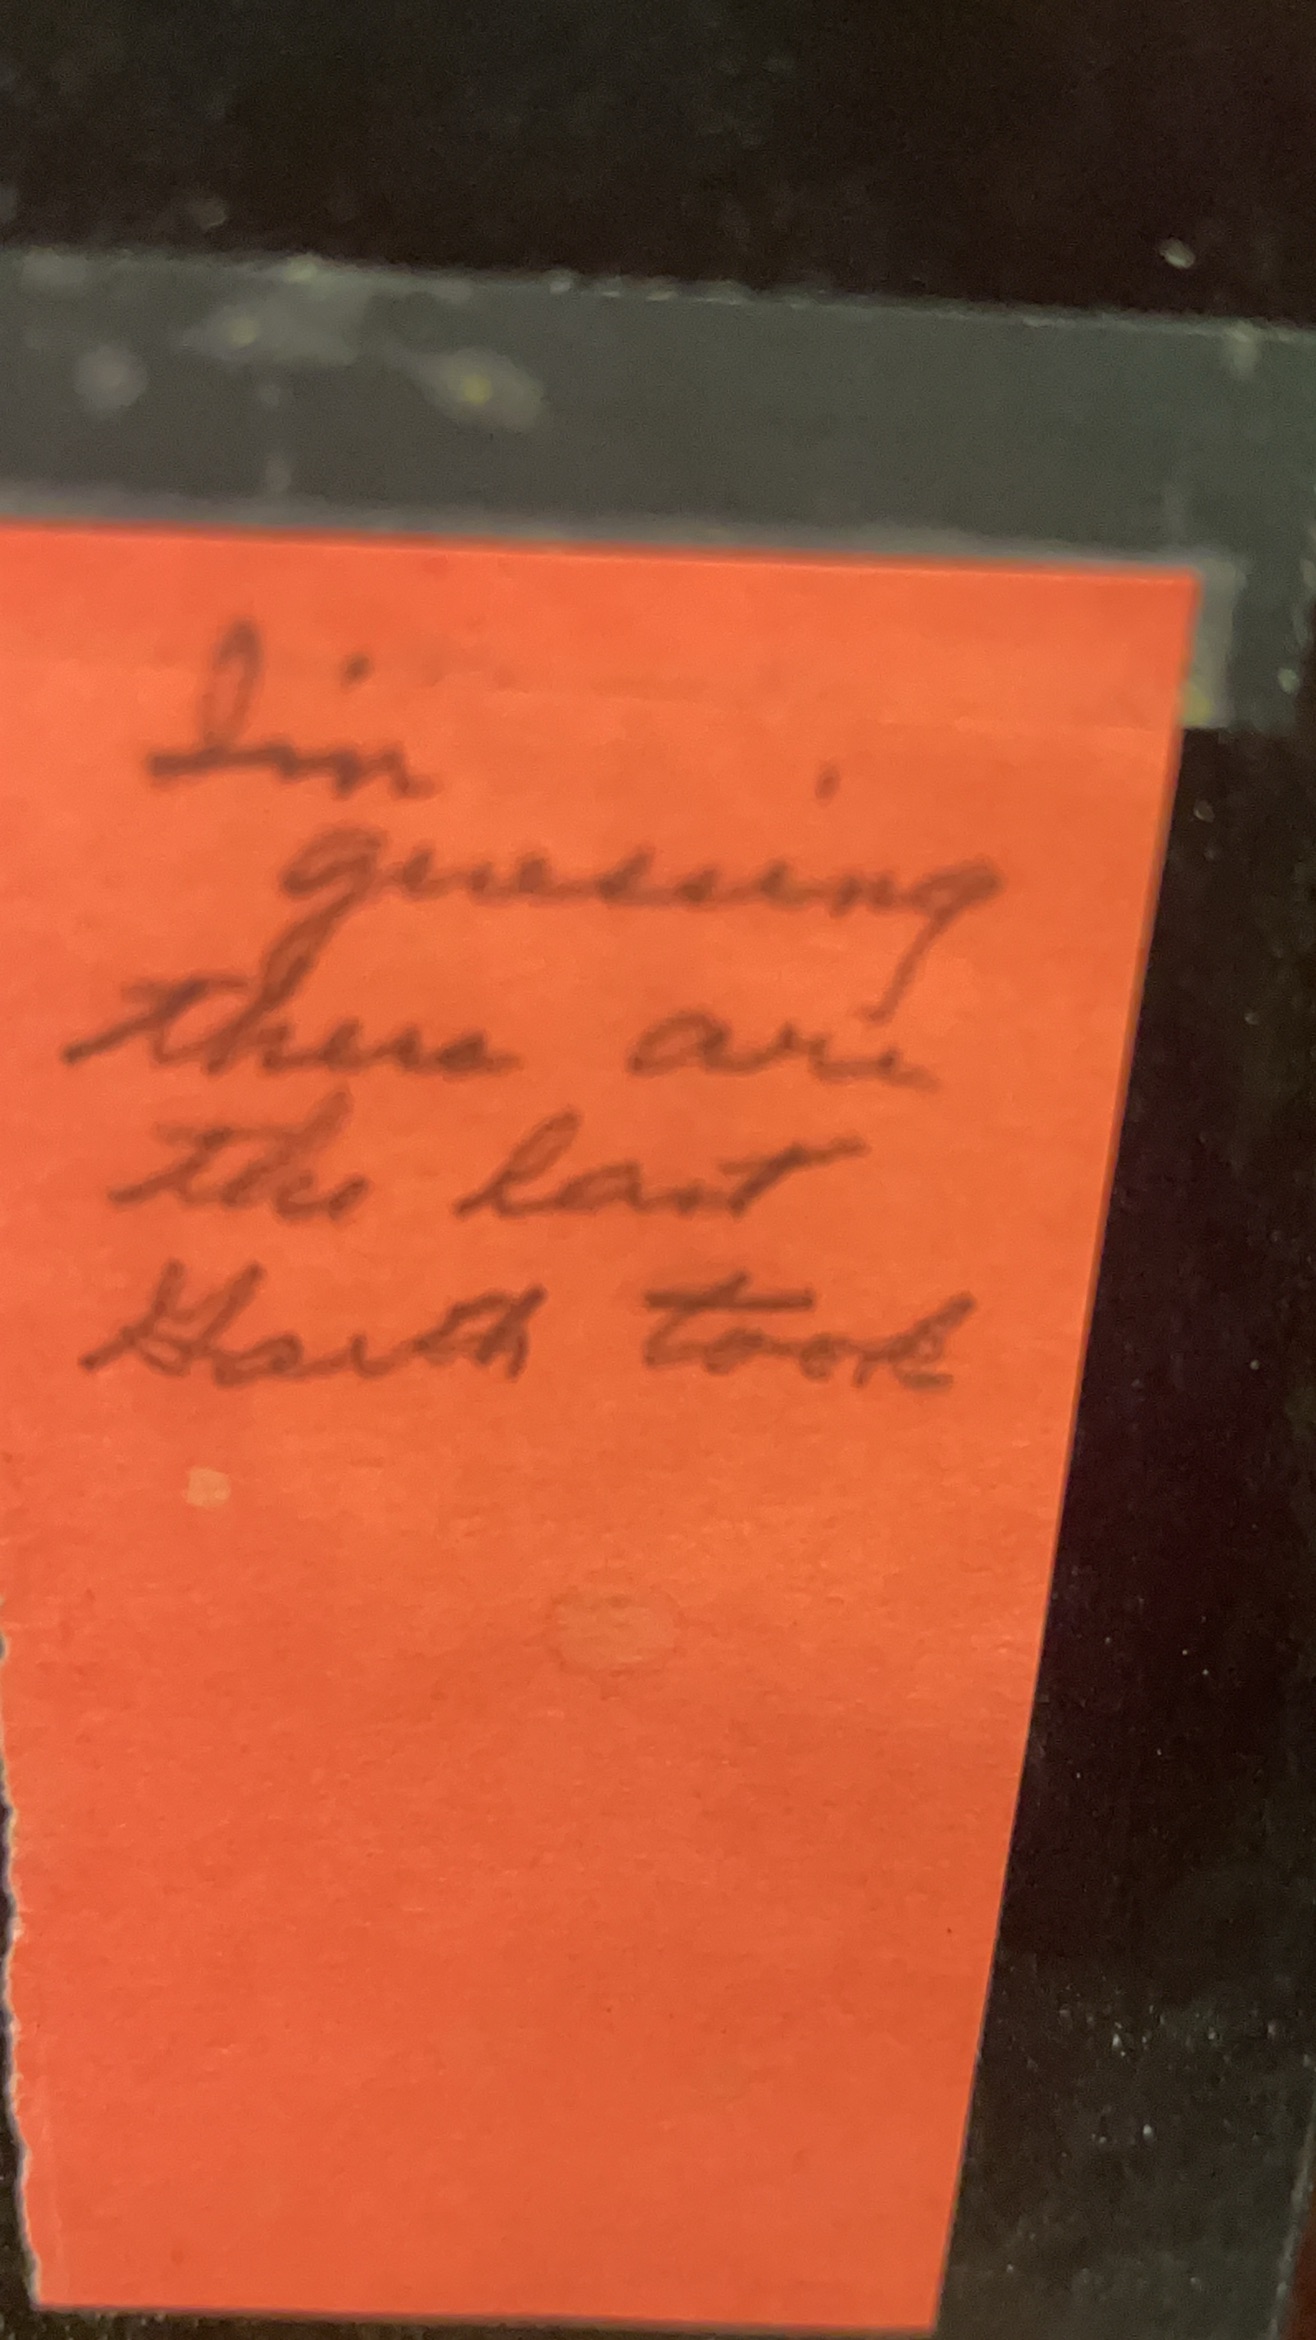 I'm
guessing
these are
the last
Garth took